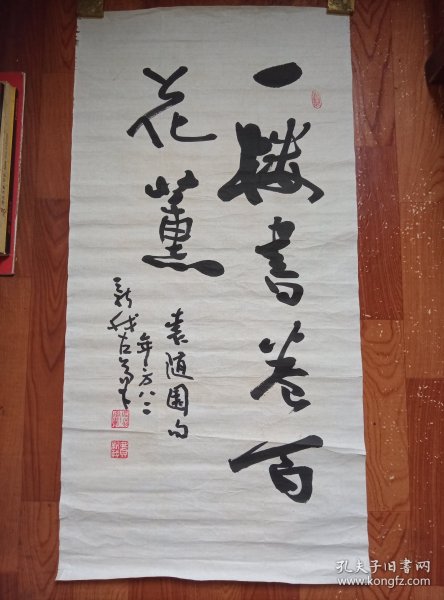 一楼書卷百
花薰
袁随園句
年方八二
孔夫子旧书网
www.kongfz.com